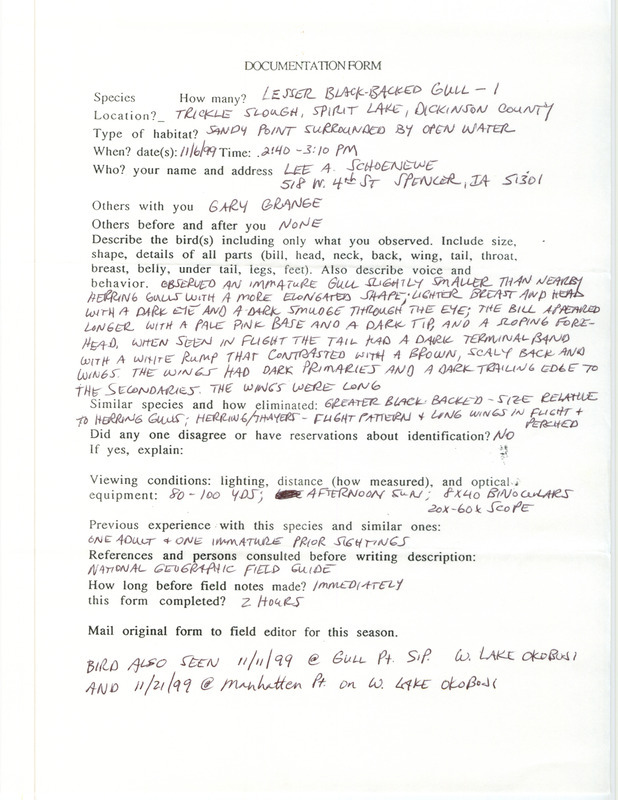 DOCUMENTATION FORM
Species How many? LESSER BLACK-BACKED GULL - 1
Location?_ TRICKLE SLOUGH, SPIRIT LAKE, DICKINSON COUNTY
Type of habitat? SANDY POINT SURROUNDED BY OPEN WATER
When? date(s): 11/6/99 Time: 2:40 - 3:10 PM
Who? your name and address LEE A. SCHOENEWE
518 W. 4th ST SPENCER, IA 51301
Others with you GARY GRANGE
Others before and after you NONE
Describe the bird(s) including only what you observed. Include size,
shape, details of all parts (bill, head, neck, back, wing, tail, throat,
breast, belly, under tail, legs, feet). Also describe voice and
behavior. OBSERVED AN IMMATURE GULL SLIGHTLY SMALLER THAN NEARBY
HERRING GULLS WITH A MORE ELONGATED SHAPE; LIGHTER BREAST AND HEAD
WITH A DARK EYE AND A DARK SMUDGE THROUGH THE EYE; THE BILL APPEARED
LONGER WITH A PALE PINK BASE AND A DARK TIP, AND A SLOPING FORE-
HEAD, WHEN SEEN IN FLIGHT THE TAIL HAD A DARK TERMINAL BAND
WITH A WHITE RUMP THAT CONTRASTED WITH A BROWN, SCALY BACK AND
WINGS. THE WINGS HAD DARK PRIMARIES AND A DARK TRAILING EDGE TO
THE SECONDARIES. THE WINGS WERE LONG
Similar species and how eliminated: GREATER BLACK-BACKED - SIZE RELATIVE
TO HERRING GULLS; HERRING/THAYERS - FLIGHT PATTERN + LONG WINGS IN FLIGHT +
PERCHED
Did any one disagree or have reservations about identification? NO
If yes, explain:
Viewing conditions: lighting, distance (how measured), and optical
equipment: 80-100 YDS; AFTERNOON SUN; 8X40 BINOCULARS
20X-60X SCOPE
Previous experience with this species and similar ones:
ONE ADULT + ONE IMMATURE PRIOR SIGHTINGS
References and persons consulted before writing description:
NATIONAL GEOGRAPHIC FIELD GUIDE
How long before field notes made? IMMEDIATELY
this form completed? 2 HOURS
Mail original form to field editor for this season.
BIRD ALSO SEEN 11/11/99 @ GULL Pt. S.P. W. LAKE OKOBOJI
AND 11/21/99 @ Manhatten Pt. on W. LAKE OKOBOJI